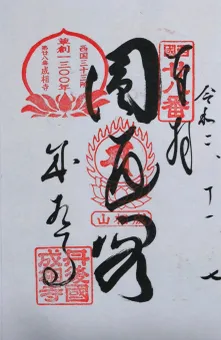 奉拝
令和二、十一、七
圓通閣
成相寺
西国三十三所
草創一三〇〇年
第廿八番 成相寺
西国廿八番
丹後國成相寺